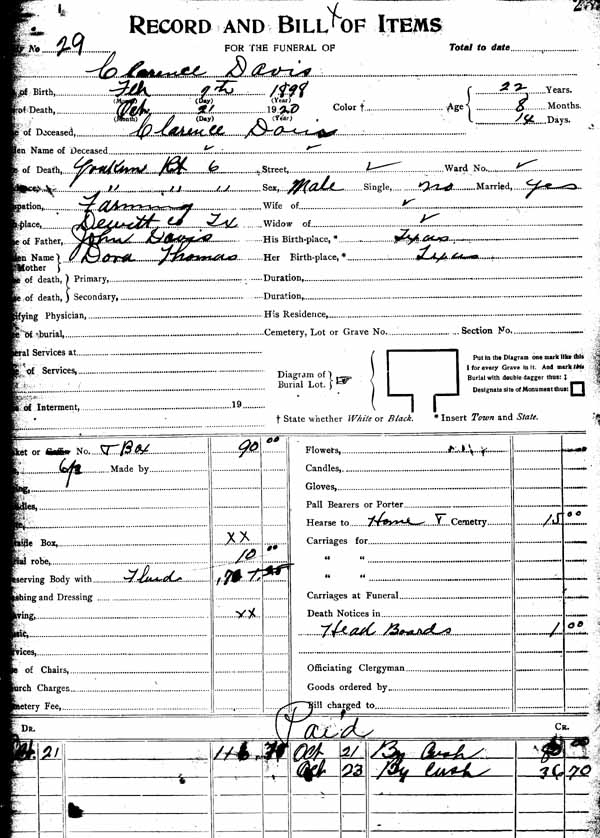 RECORD AND BILL OF ITEMS
No 29 FOR THE FUNERAL OF Total to date
Clarence Davis
of Birth, Feb 7th 1898 22 Years.
(Month) (Day) (Year)
of Death, Oct 21 1920 Color † Age 8 Months.
(Month) (Day) (Year) 14 Days.
e of Deceased, Clarence Davis
en Name of Deceased ✓ ✓
e of Death, Yoakum Rt 6 Street, ✓ Ward No. ✓
" " " Sex, Male Single, no Married, Yes
pation, Farming Wife of ✓
place, Dewitt Co Tx Widow of ✓
e of Father, John Davis His Birth-place, * Texas
en Name } Dora Thomas Her Birth-place, * Texas
Mother
e of death, } Primary, Duration,
e of death, } Secondary, Duration,
fying Physician, His Residence,
e of burial, Cemetery, Lot or Grave No. Section No.
eral Services at
of Services,
Diagram of Burial Lot.
Put in the Diagram one mark like this
I for every Grave in it. And mark this
Burial with double dagger thus: ‡
Designate site of Monument thus:
of Interment, 19
† State whether White or Black. * Insert Town and State.
ket or No. & Box 90 00 Flowers,
Made by Candles,
Gloves,
Pall Bearers or Porter
Hearse to Home & Cemetry 15 00
side Box, XX Carriages for
ial robe, 10 00 " "
serving Body with Fluid " "
shing and Dressing Carriages at Funeral
ving, XX Death Notices in
sic, Head Boards 1 00
vices,
e of Chairs, Officiating Clergyman
urch Charges Goods ordered by
metery Fee, Bill charged to
DR. Paid CR.
21 Oct 21 By Cash 00
Oct 23 By Cash 36 70